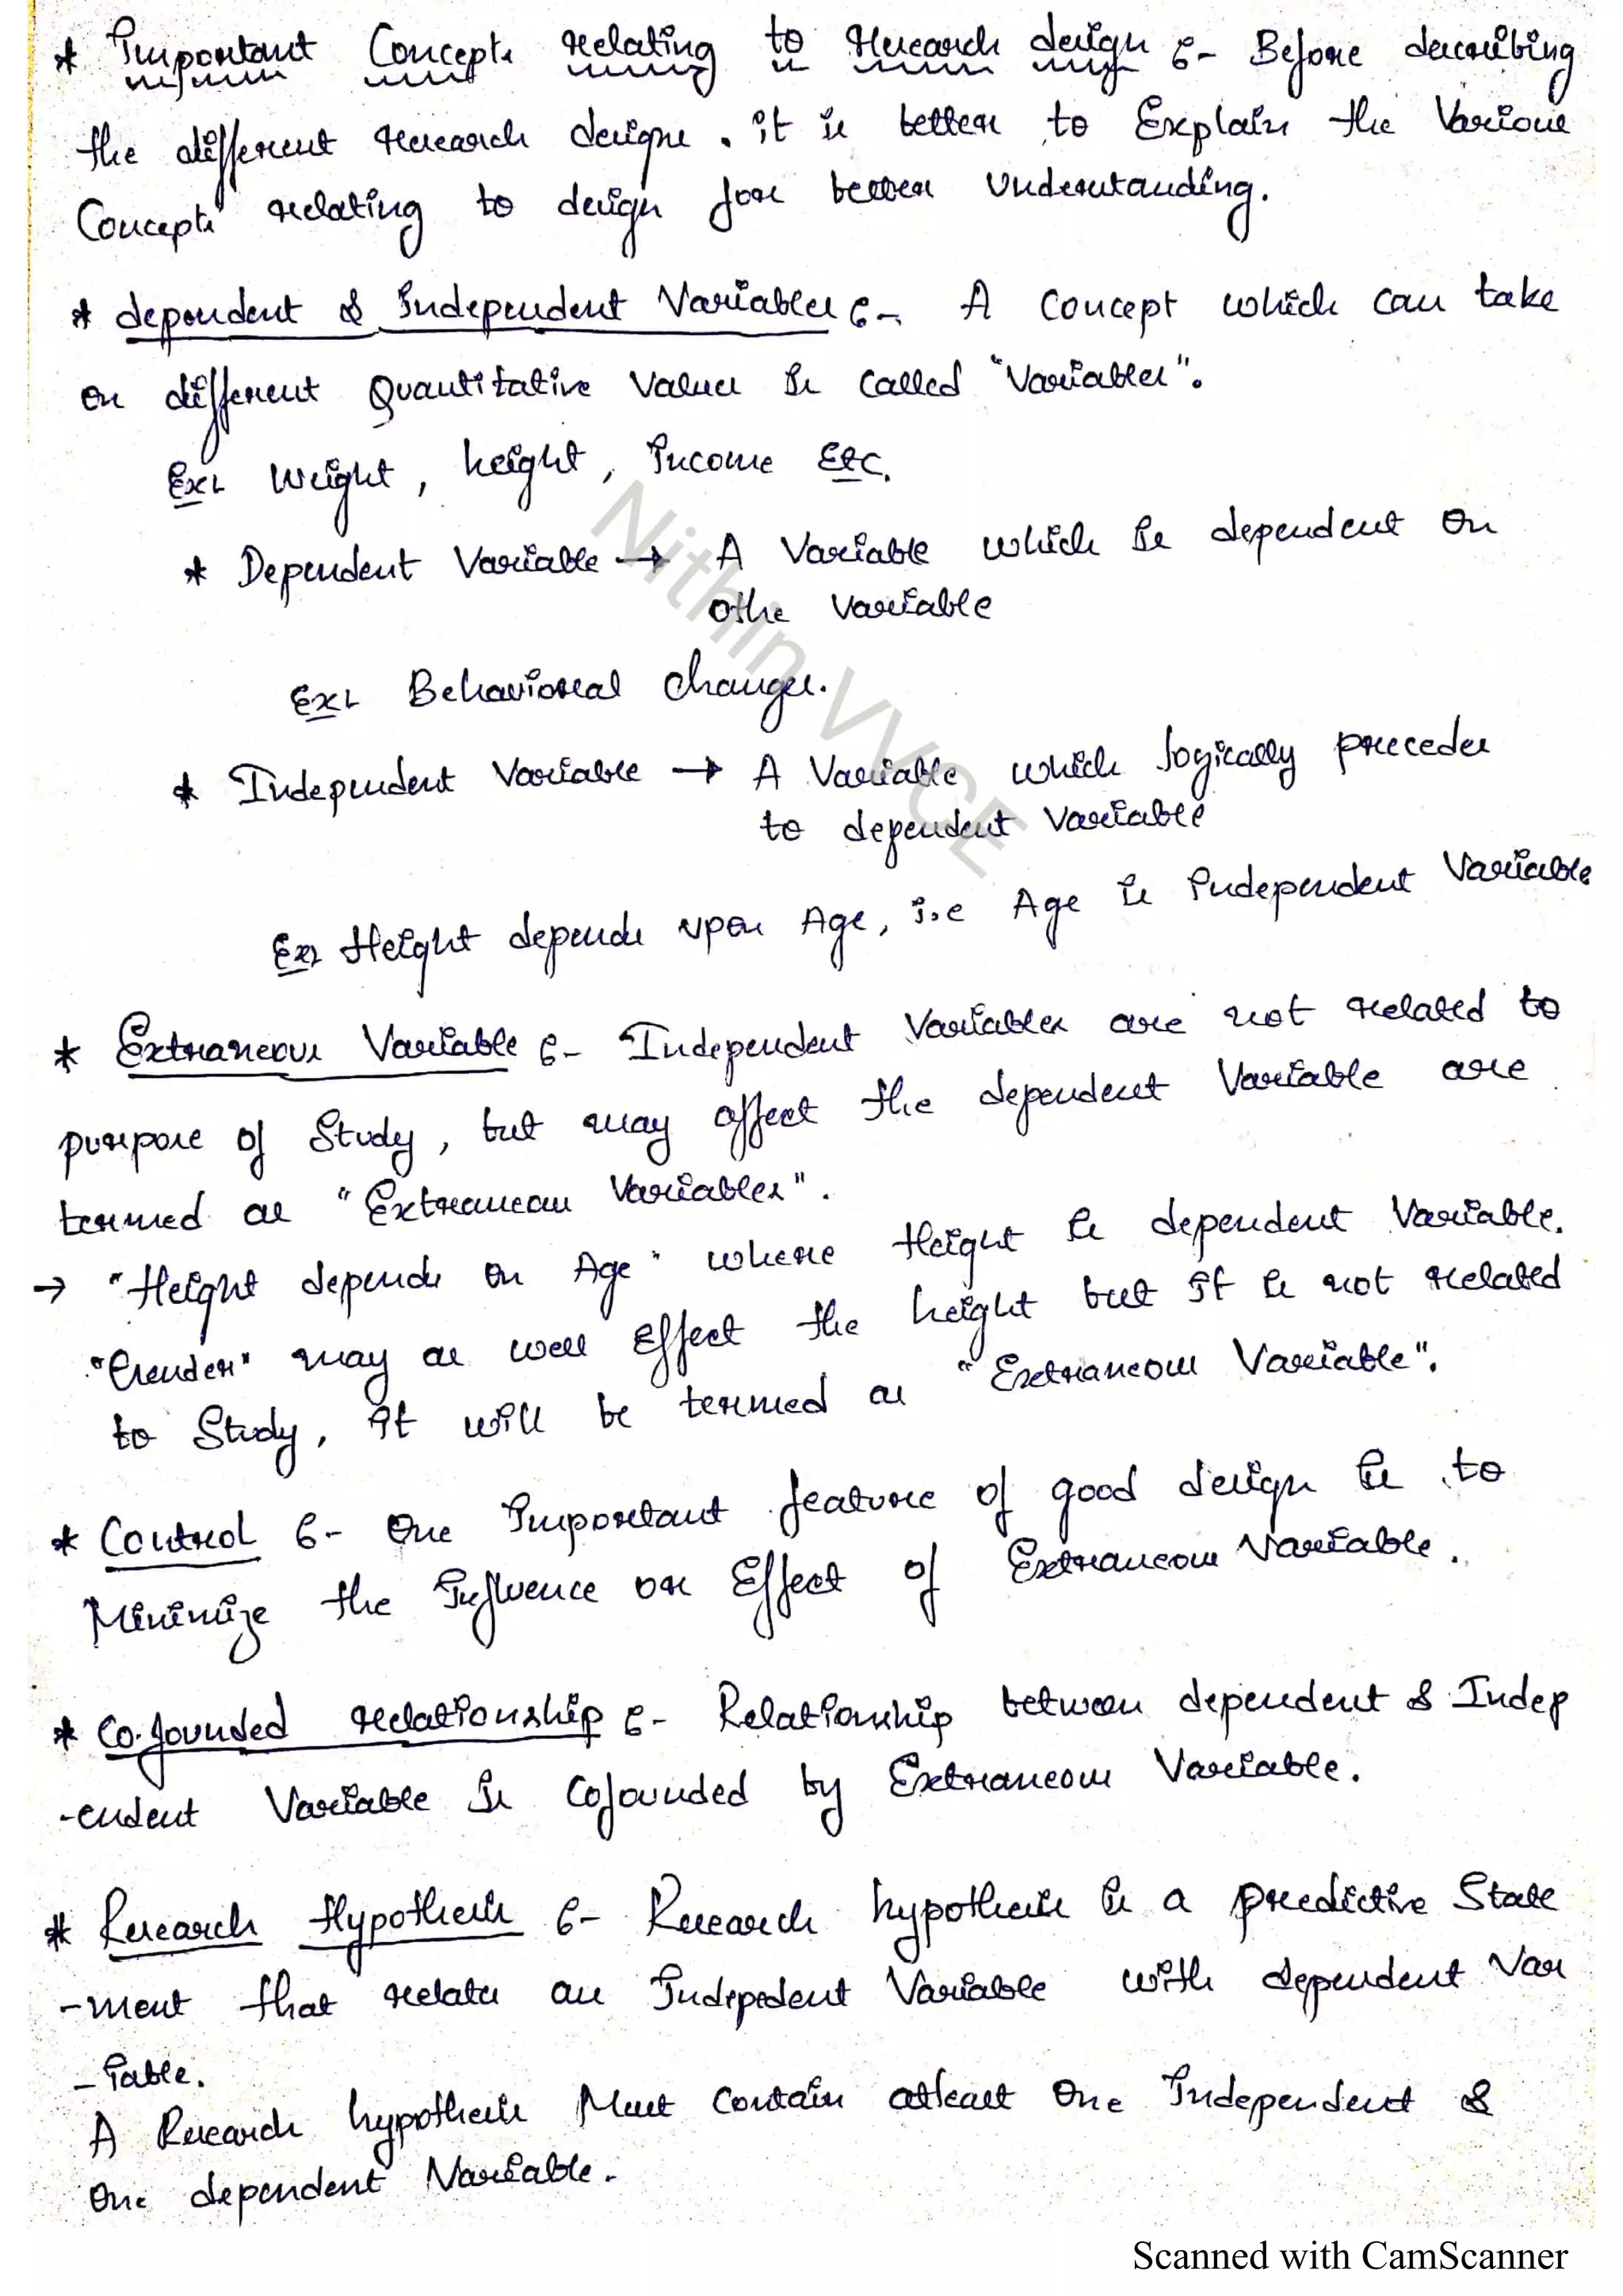 * Important Concepts relating to Research design :- Before describing
the different research designs. it is better to Explain the Various
Concepts relating to design for better Understanding.
* dependent & Independent Variables :- A Concept which can take
on different Quantitative Values is called "Variables".
Ex:- Weight, height, Income etc.
* Dependent Variable → A Variable which is dependent on
othe variable
Ex:- Behavioral changes.
* Independent Variable → A Variable which logically precedes
to dependent Variable
Ex:- Height depends upon Age, i.e Age is Independent Variable
* Extraneous Variable :- Independent Variables are not related to
purpose of Study, but may affect the dependent Variable are
termed as "Extraneous Variables".
→ "Height depends on Age" where Height is dependent Variable.
"Gender" may as well Effect the height but it is not related
to Study, it will be termed as "Extraneous Variable".
* Control :- One Important feature of good design is to
Minimize the Influence or Effect of Extraneous Variable.
* Co-founded relationship :- Relationship between dependent & Indep
-endent Variable is Cofounded by Extraneous Variable.
* Research Hypothesis :- Research hypothesis is a predictive State
-ment that relates an Indepedent Variable with dependent Var
-iable.
A Research hypothesis Must Contain atleast One Independent &
One dependent Variable.
Nithin VVCE
Scanned with CamScanner